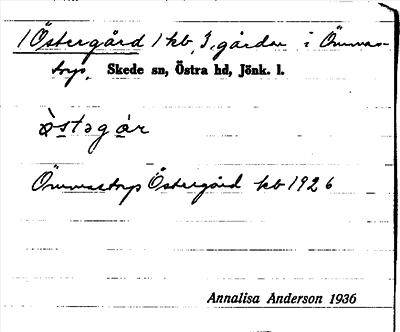 1 Östergård 1 kb, 3, gårdar i Ömmas-
torp, Skede sn, Östra hd, Jönk. l.
ὸstəgår
Ömmastorp Östergård kb 1926
Annalisa Anderson 1936